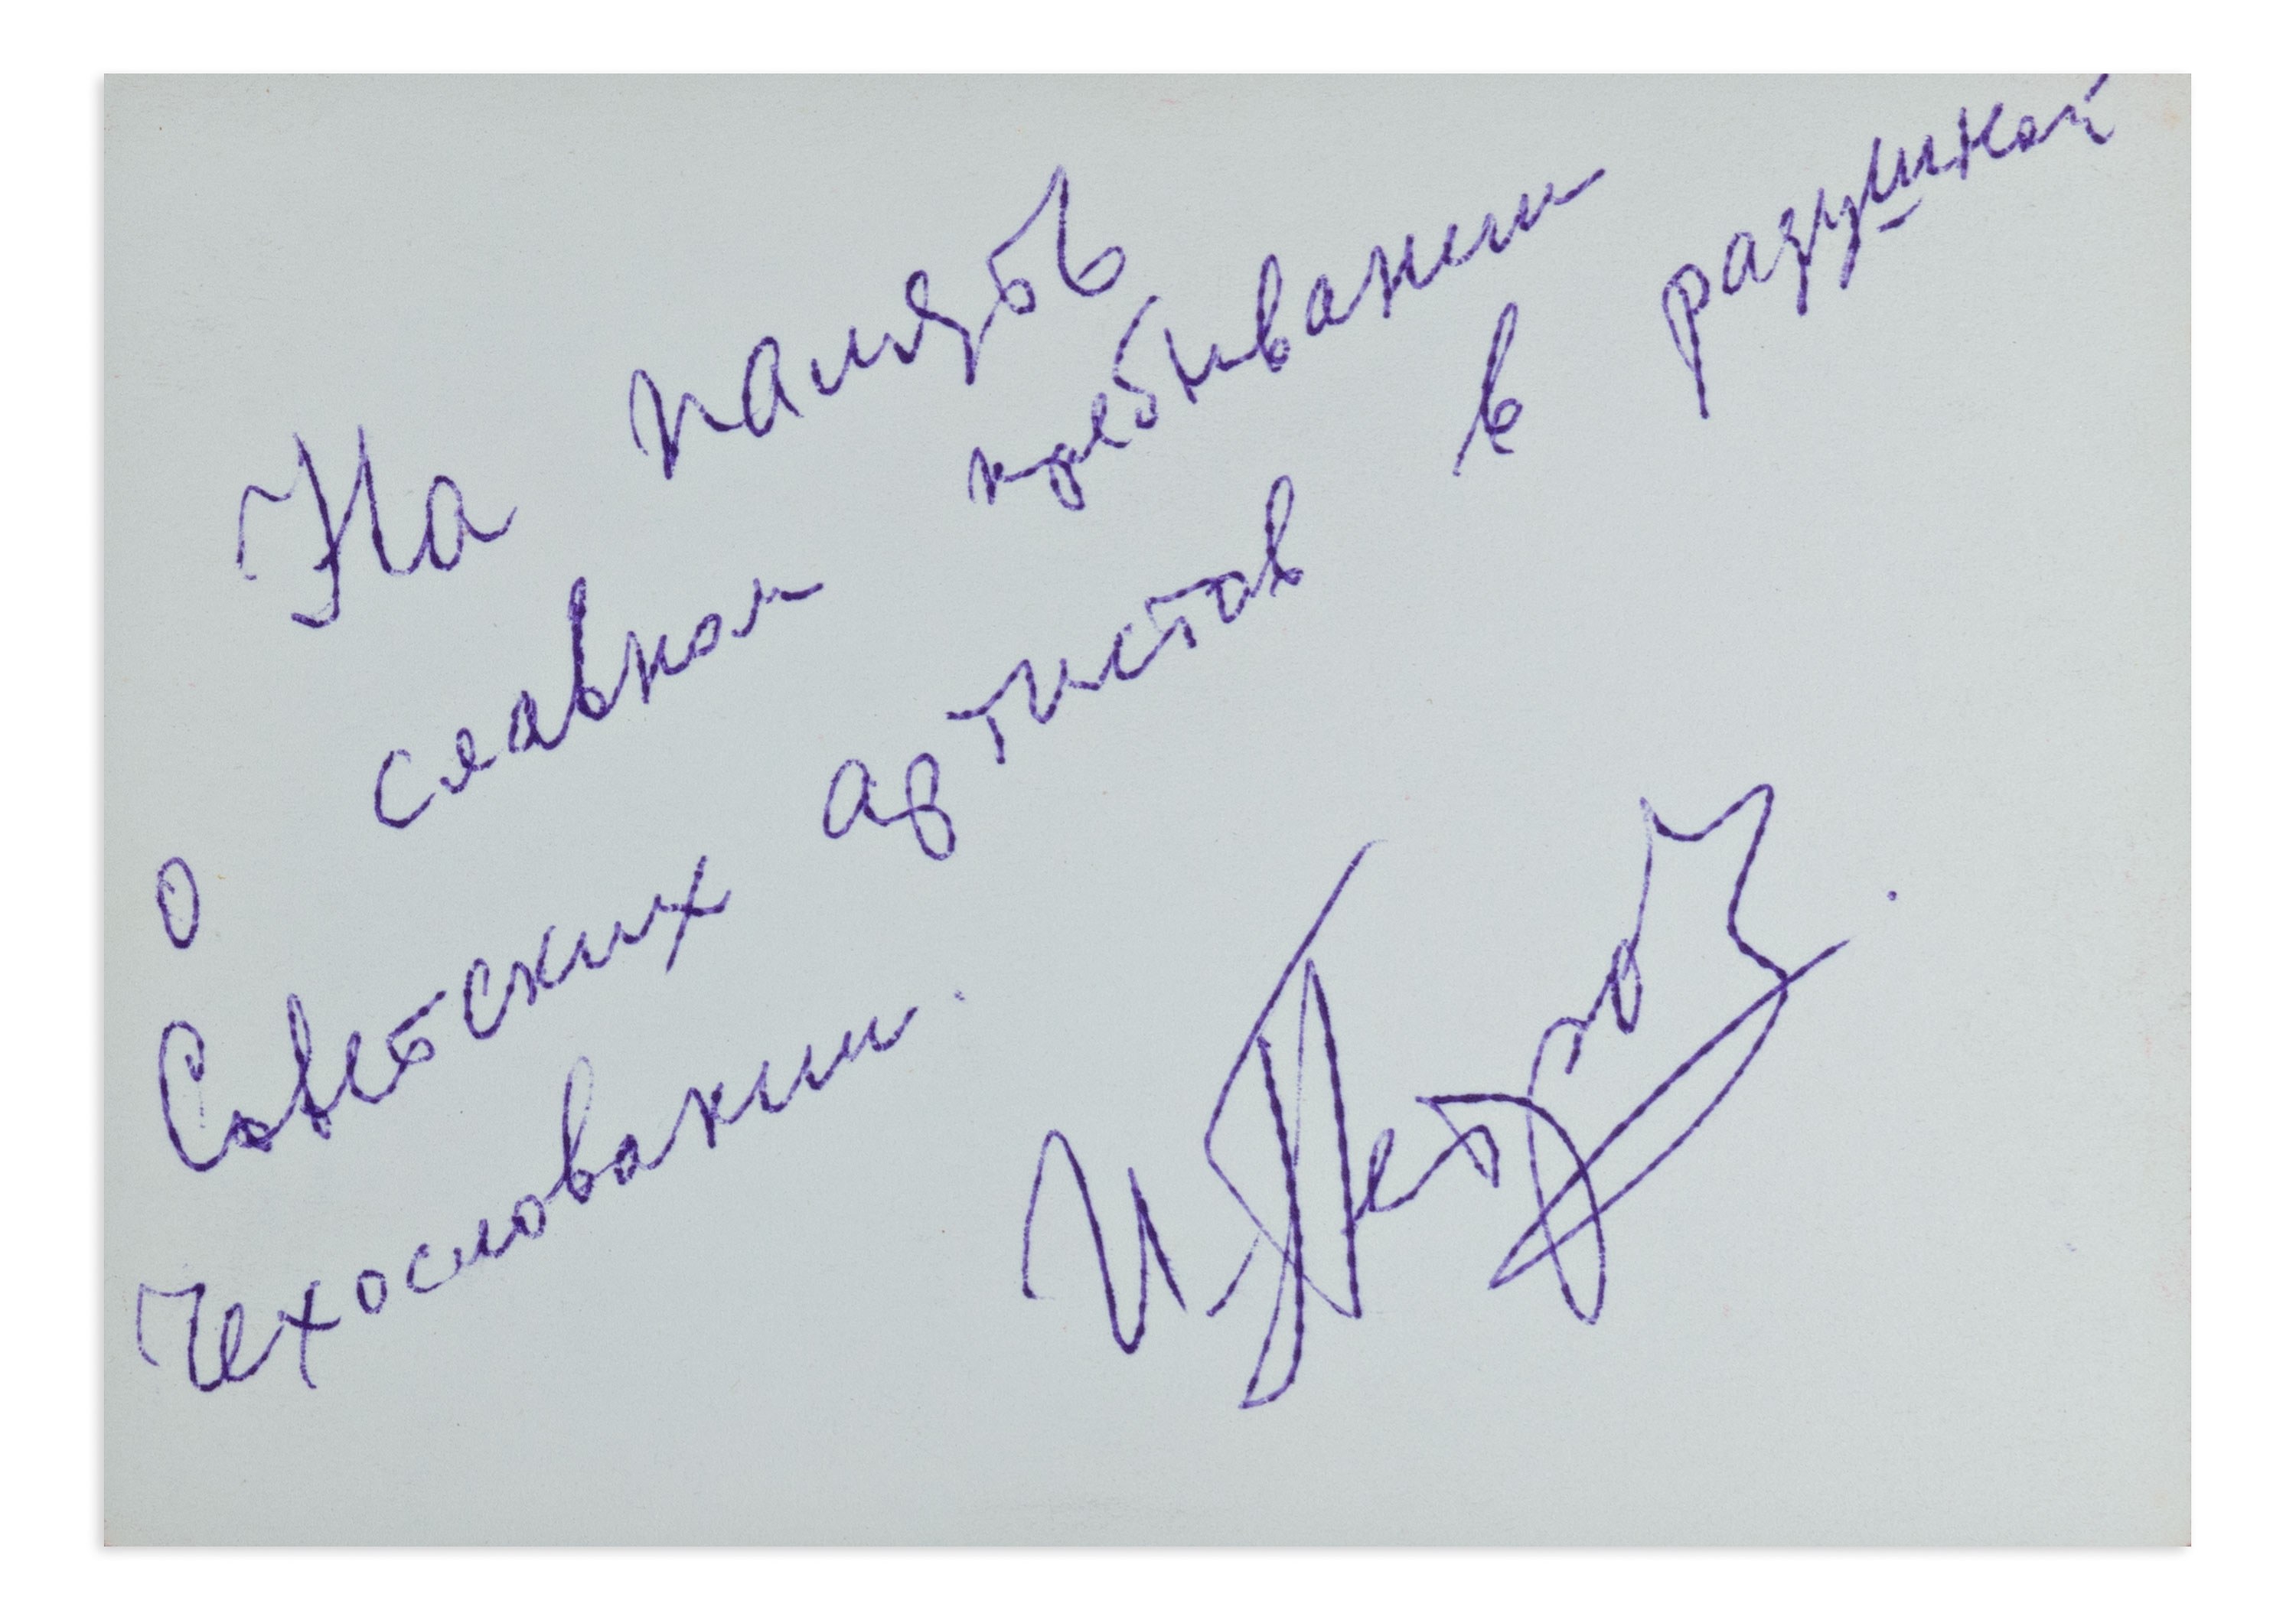 На память
о славном пребывании
Советских артистов в радушной
Чехословакии.
И. Петров.